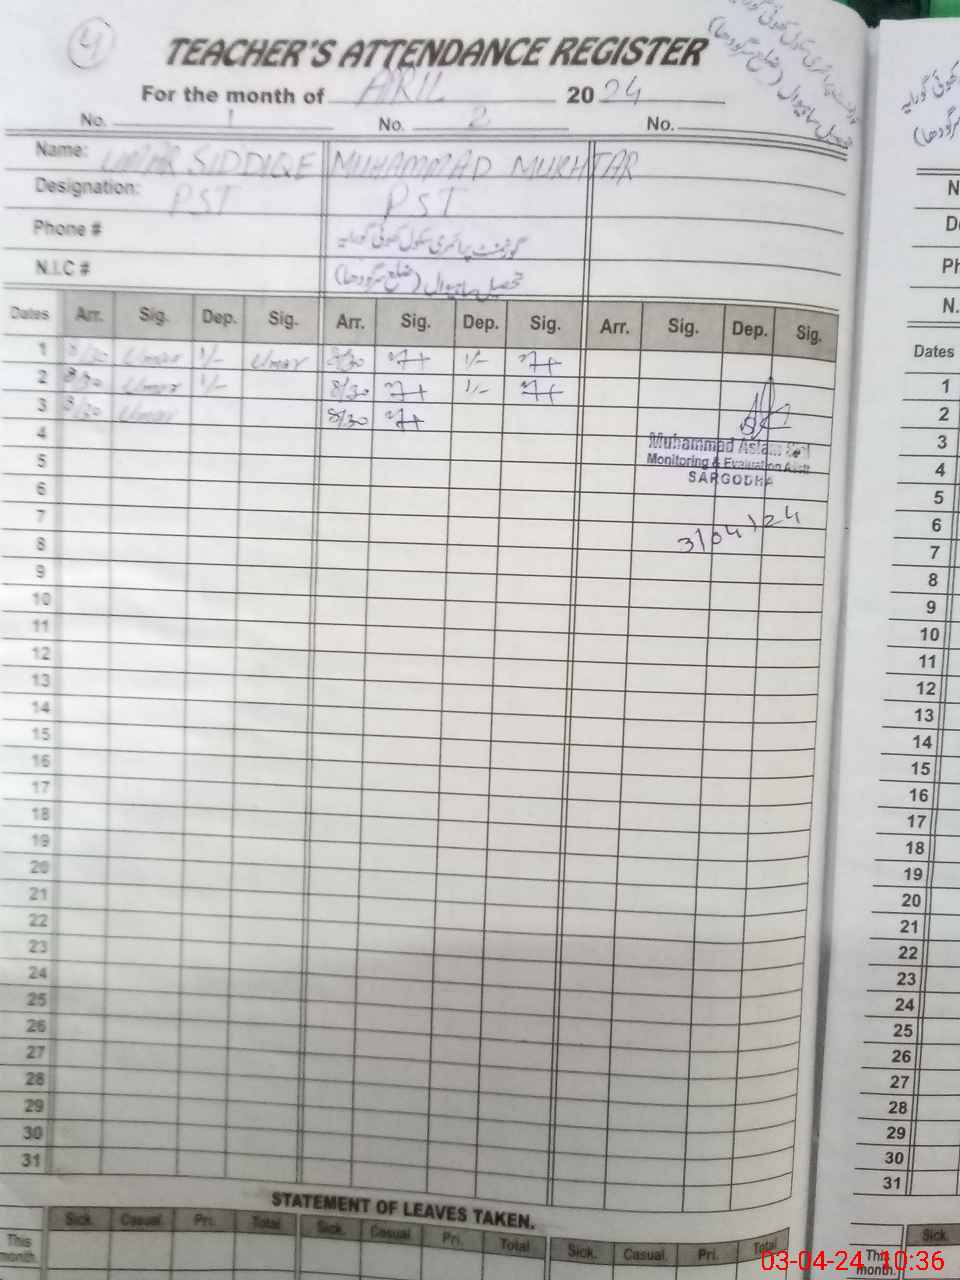 4
TEACHER'S ATTENDANCE REGISTER
For the month of APRIL 2024
No. 1 No. 2 No.
Name: UMAR SIDDIQE MUHAMMAD MUKHTAR
Designation: PST PST
Phone # گورنمنٹ پرائمری سکول
N.I.C # تحصیل ساہیوال (ضلع سرگودھا)
Dates Arr. Sig. Dep. Sig. Arr. Sig. Dep. Sig. Arr. Sig. Dep. Sig.
1 8/30 Umar 1/- Umar 8/30 1/-
2 8/30 Umar 1/- 8/30 1/-
3 8/30 Umar 8/30
4
Muhammad Aslam
5
Monitoring & Evaluation Asstt
SARGODHA
6
7
3/04/24
8
9
10
11
12
13
14
15
16
17
18
19
20
21
22
23
24
25
26
27
28
29
30
31
STATEMENT OF LEAVES TAKEN.
Sick. Casual. Pri. Total Sick. Casual Pri. Total Sick. Casual. Pri. Total
This month.
تحصیل ساہیوال (ضلع سرگودھا)
N
D
Ph
N.
Dates
1
2
3
4
5
6
7
8
9
10
11
12
13
14
15
16
17
18
19
20
21
22
23
24
25
26
27
28
29
30
31
Sick.
This month.
03-04-24 10:36